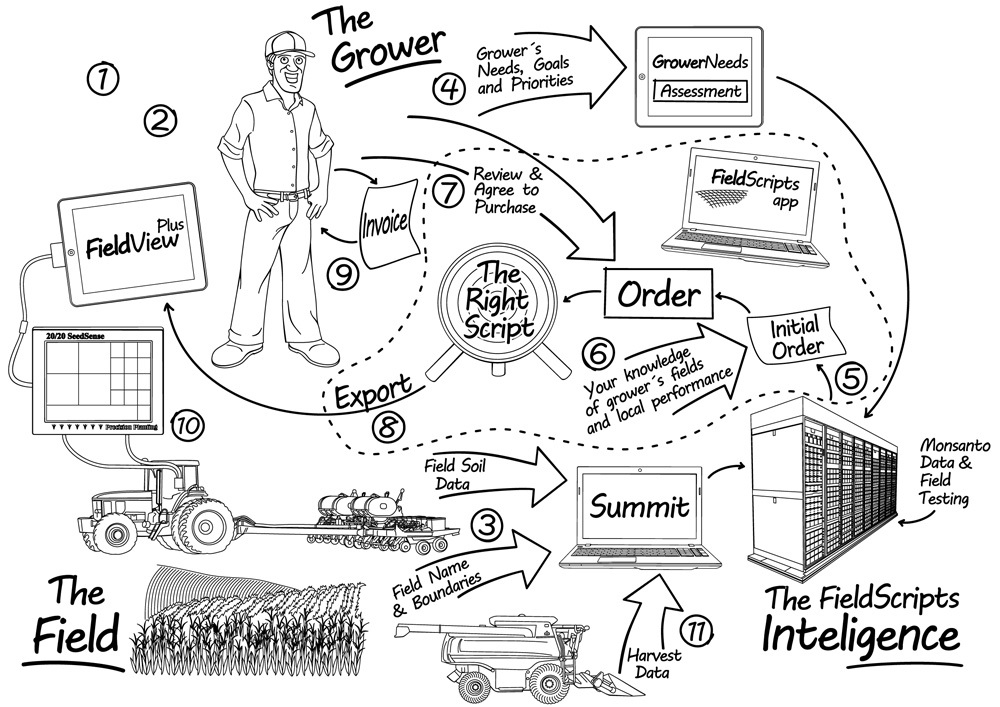 The
Grower
1
2
4
Grower´s
Needs, Goals
and Priorities
GrowerNeeds
Assessment
7
Review &
Agree to
Purchase
FieldScripts
app
Plus
FieldView
Invoice
9
The
Right
Script
Order
Initial
Order
6
Your knowledge
of grower´s fields
and local performance
5
20/20 SeedSense
Precision Planting
10
Export
8
Field Soil
Data
3
Field Name
& Boundaries
Summit
Monsanto
Data &
Field
Testing
The
Field
11
Harvest
Data
The FieldScripts
Inteligence